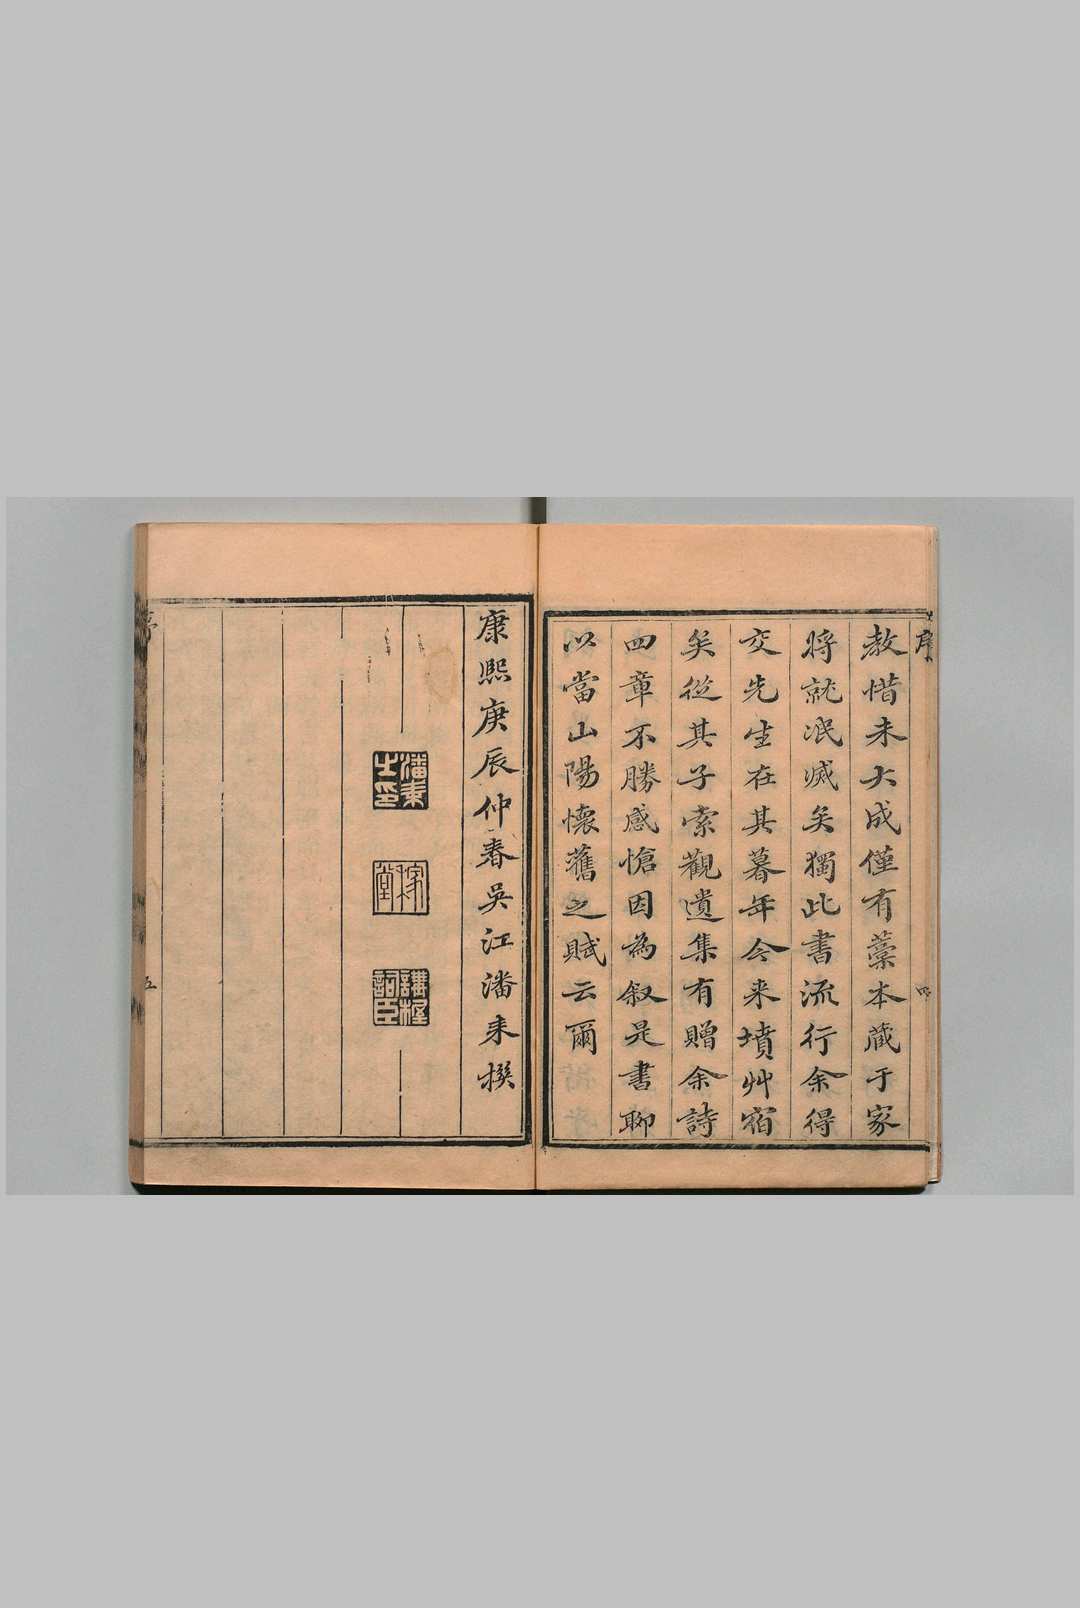 序
教惜未大成僅有藁本藏于家
將就泯滅矣獨此書流行余得
交先生在其暮年今来墳艸宿
矣從其子索觀遺集有贈余詩
四章不勝感愴因為叙是書聊
以當山陽懷舊之賦云爾
四
康熙庚辰仲春吳江潘耒撰
潘耒之印
稼堂
五